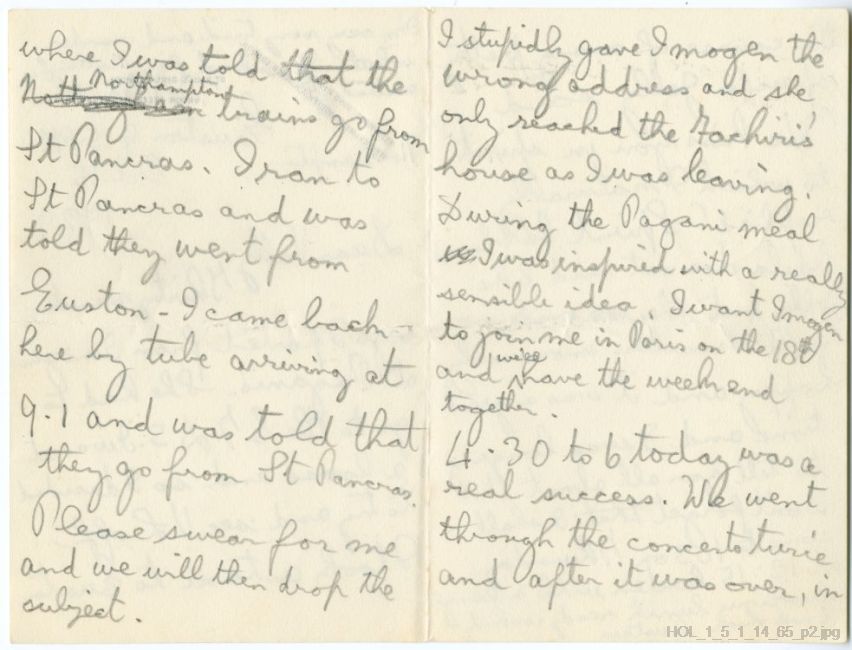 where I was told that the
Northampton
trains go from
St Pancras. I ran to
St Pancras and was
told they went from
Euston - I came back
here by tube arriving at
9.1 and was told that
they go from St Pancras.
Please swear for me
and we will then drop the
subject.
I stupidly gave Imogen the
wrong address and she
only reached the Fachiris'
house as I was leaving.
During the Pagani meal
I was inspired with a really
sensible idea. I want Imogen
to join me in Paris on the 18th
and we'll have the week end
together.
4.30 to 6 today was a
real success. We went
through the concerto twice
and after it was over, in
HOL_1_5_1_14_65_p2.jpg